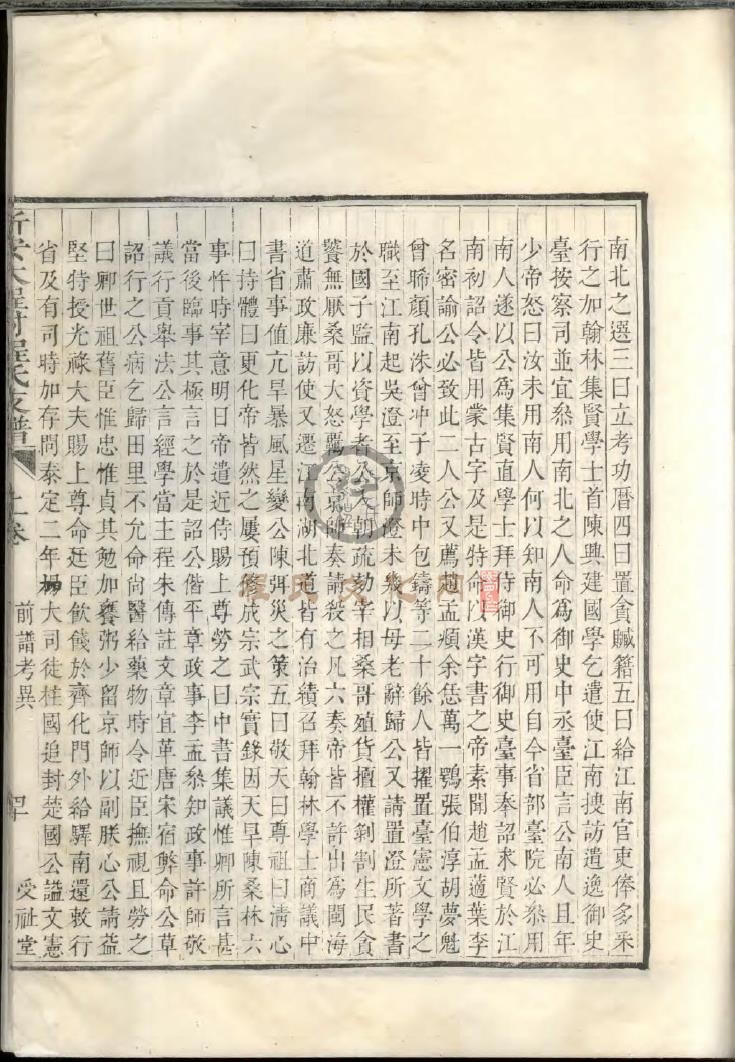 南北之選三曰立考功曆四曰置貪贓籍五曰給江南官吏俸多采
行之加翰林集賢學士首陳興建國學乞遣使江南搜訪遺逸御史
臺按察司並宜叅用南北之人命爲御史中丞臺臣言公南人且年
少帝怒曰汝未用南人何以知南人不可用自今省部臺院必叅用
南人遂以公爲集賢直學士拜侍御史行御史臺事奉詔求賢於江
南初詔令皆用蒙古字及是特命以漢字書之帝素聞趙孟藡葉李
名密諭公必致此二人公又薦趙孟頫余恁萬一鶚張伯淳胡夢魁
曾晞顔孔洙曾冲子凌時中包鑄等二十餘人皆擢置臺憲文學之
職至江南起吳澄至京師澄未幾以母老辭歸公又請置澄所著書
於國子監以資學者入朝疏劾宰相桑哥殖貨擅權剝割生民貪
饕無厭桑哥大怒羈公京師奏請殺之凡六奏帝皆不許出爲閩海
道肅政廉訪使又遷江南湖北道皆有治績召拜翰林學士商議中
書省事值亢旱暴風星變公陳弭災之策五曰敬天曰尊祖曰淸心
曰持體曰更化帝皆然之屢預修成宗武宗實錄因天旱陳桑林六
事忤時宰意明日帝遣近侍賜上尊勞之曰中書集議惟卿所言甚
當後臨事其極言之於是詔公偕平章政事李孟叅知政事許師敬
議行貢舉法公言經學當主程朱傳註文章宜革唐宋宿弊命公草
詔行之公病乞歸田里不允命尚醫給藥物時令近臣撫視且勞之
曰卿世祖舊臣惟忠惟貞其勉加餐粥少留京師以副朕心公請益
堅特授光祿大夫賜上尊命廷臣飲餞於齊化門外給驛南還敕行
省及有司時加存問泰定二年贈大司徒柱國追封楚國公謚文憲
程氏支譜
上卷
前譜考異
受祉堂